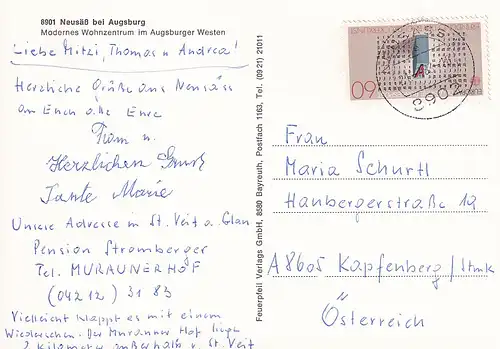 8901 Neusäß bei Augsburg
Modernes Wohnzentrum im Augsburger Westen
Liebe Mitzi, Thomas u Andrea!
Herzliche Grüße aus Neusäss
an Euch alle Eure
Fam u.
Herzlichen Gruß
Tante Marie
Unsere Adresse in St. Veit a. Glan
Pension Stromberger
Tel. MURAUNERHOF
(04212) 31 83
Vielleicht klappt es mit einem
Wiedersehen. Der Murauner Hof liegt
2 Kilometer außerhalb v. St. Veit
Feuerpfeil Verlags GmbH, 8580 Bayreuth, Postfach 1163, Tel. (0921) 21011
60
8902
Frau
Maria Schurtl
Haubergerstraße 19
A8605 Kapfenberg / Stmk
Österreich